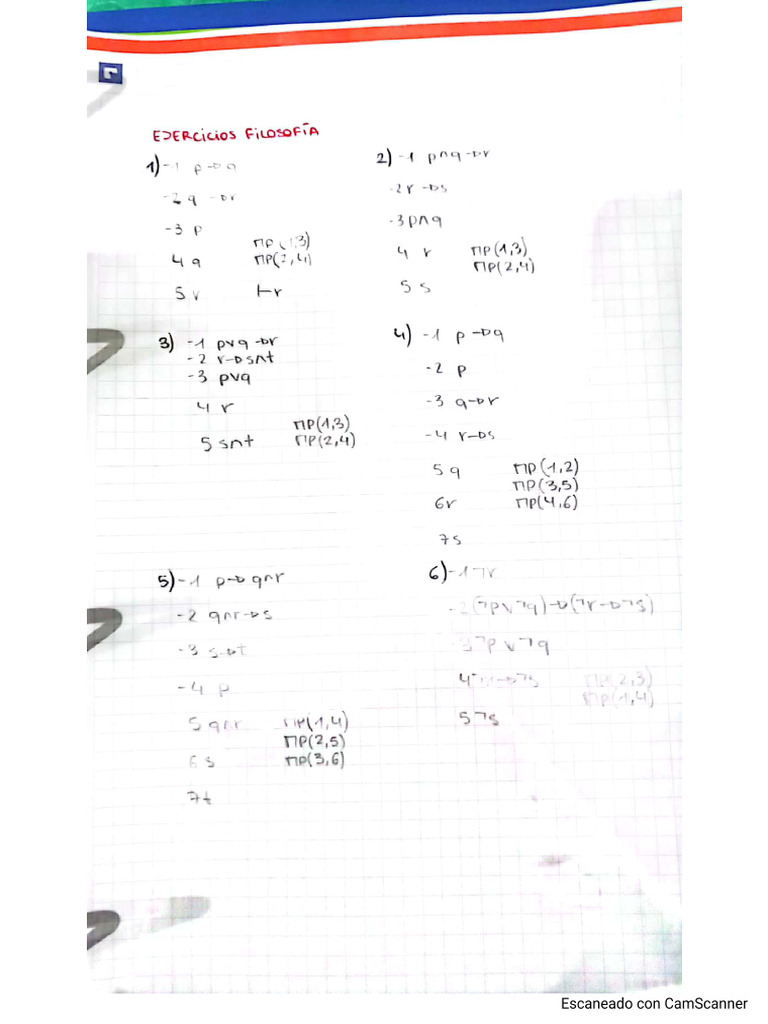 EJERCICIOS FILOSOFÍA
1) -1 p→q
-2 q→r
-3 p
4 q ΠP(1,3)
ΠP(2,4)
5 r ⊢r
2) -1 p∧q→r
-2 r→s
-3 p∧q
4 r ΠP(1,3)
ΠP(2,4)
5 s
3) -1 p∨q→r
-2 r→s∧t
-3 p∨q
4 r
ΠP(1,3)
5 s∧t ΠP(2,4)
4) -1 p→q
-2 p
-3 q→r
-4 r→s
5 q ΠP(1,2)
ΠP(3,5)
6r ΠP(4,6)
7s
5) -1 p→q∧r
-2 q∧r→s
-3 s→t
-4 p
5 q∧r ΠP(1,4)
ΠP(2,5)
6 s ΠP(3,6)
7t
6) -1 ¬r
-2(¬p∨¬q)→(¬r→¬s)
-3 ¬p∨¬q
4 ¬r→¬s ΠP(2,3)
ΠP(1,4)
5 ¬s
Escaneado con CamScanner